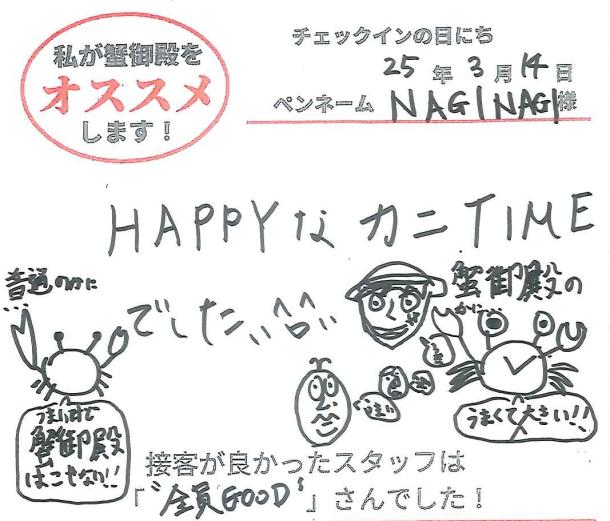 私が蟹御殿を
オススメ
します！
チェックインの日にち
25年3月14日
ペンネーム NAGINAGI様
HAPPYな カニTIME
でした
普通のかに
蟹御殿の
かに
うまくて大きい!!
蟹御殿
はこせない!!
接客が良かったスタッフは
「"全員GOOD"」さんでした！